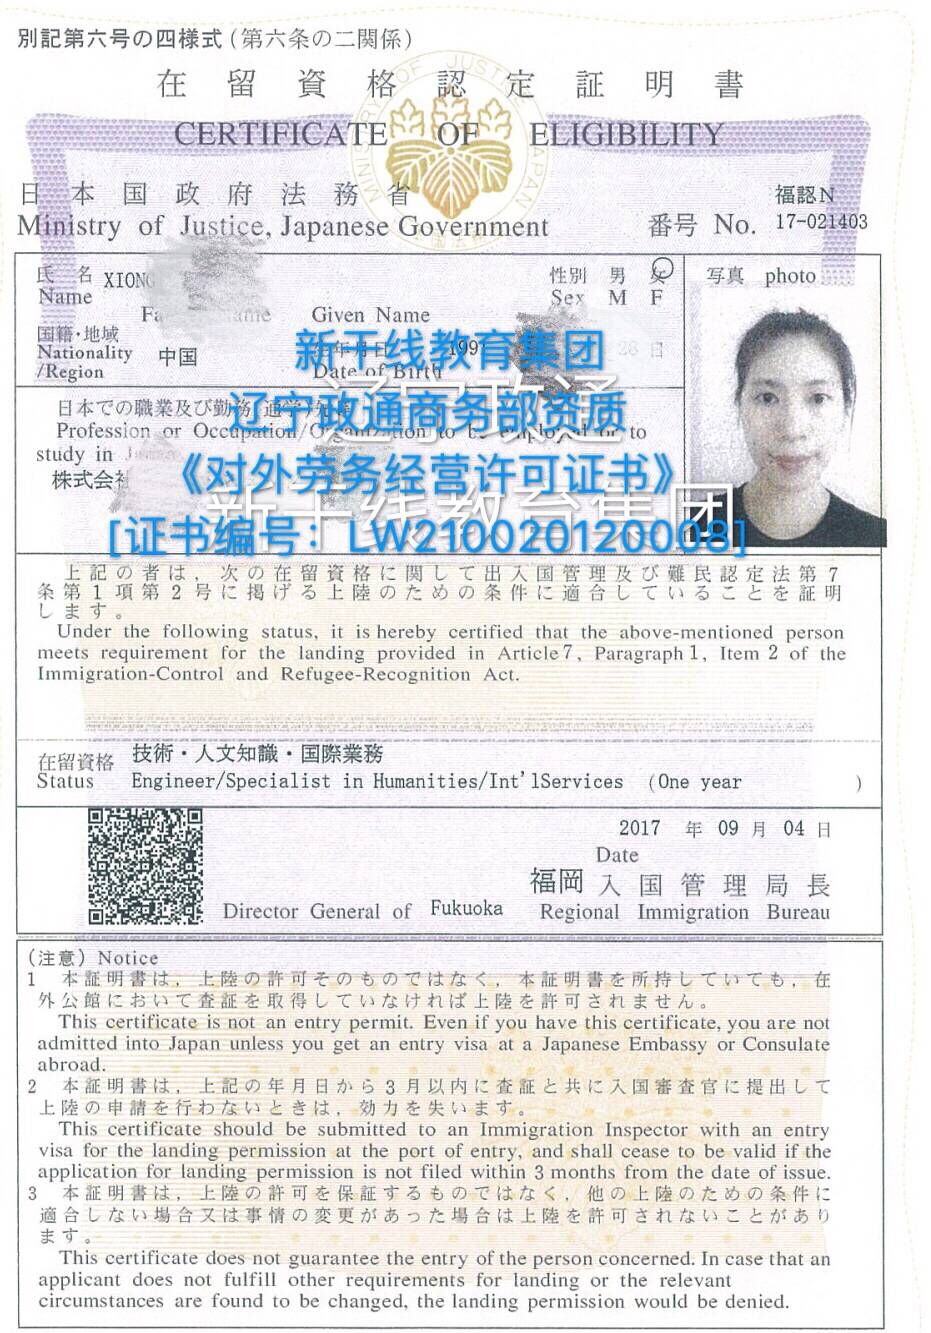 別記第六号の四様式(第六条の二関係)
在留資格認定証明書
CERTIFICATE OF ELIGIBILITY
日本国政府法務省
Ministry of Justice, Japanese Government
福認N
番号 No. 17-021403
氏名 XIONG
Name
Given Name
性別 男 女
Sex M F
写真 photo
国籍・地域
Nationality
/Region
中国
生年月日 199 28 日
Date of Birth
新干线教育集团
辽宁政通商务部资质
《对外劳务经营许可证书》
[证书编号：LW210020120008]
辽宁政通
新干线教育集团
日本での職業及び勤務
Profession or Occupation/Organization to be employed or to
study in
株式会社
上記の者は，次の在留資格に関して出入国管理及び難民認定法第7
条第1項第2号に掲げる上陸のための条件に適合していることを証明
します。
Under the following status, it is hereby certified that the above-mentioned person
meets requirement for the landing provided in Article 7, Paragraph 1, Item 2 of the
Immigration-Control and Refugee-Recognition Act.
在留資格 技術・人文知識・国際業務
Status Engineer/Specialist in Humanities/Int'lServices (One year )
2017 年 09 月 04 日
Date
福岡 入国管理局長
Director General of Fukuoka Regional Immigration Bureau
(注意) Notice
1 本証明書は，上陸の許可そのものではなく，本証明書を所持していても，在
外公館において査証を取得していなければ上陸を許可されません。
This certificate is not an entry permit. Even if you have this certificate, you are not
admitted into Japan unless you get an entry visa at a Japanese Embassy or Consulate
abroad.
2 本証明書は，上記の年月日から3月以内に査証と共に入国審査官に提出して
上陸の申請を行わないときは，効力を失います。
This certificate should be submitted to an Immigration Inspector with an entry
visa for the landing permission at the port of entry, and shall cease to be valid if the
application for landing permission is not filed within 3 months from the date of issue.
3 本証明書は，上陸の許可を保証するものではなく，他の上陸のための条件に
適合しない場合又は事情の変更があった場合は上陸を許可されないことがあり
ます。
This certificate does not guarantee the entry of the person concerned. In case that an
applicant does not fulfill other requirements for landing or the relevant
circumstances are found to be changed, the landing permission would be denied.